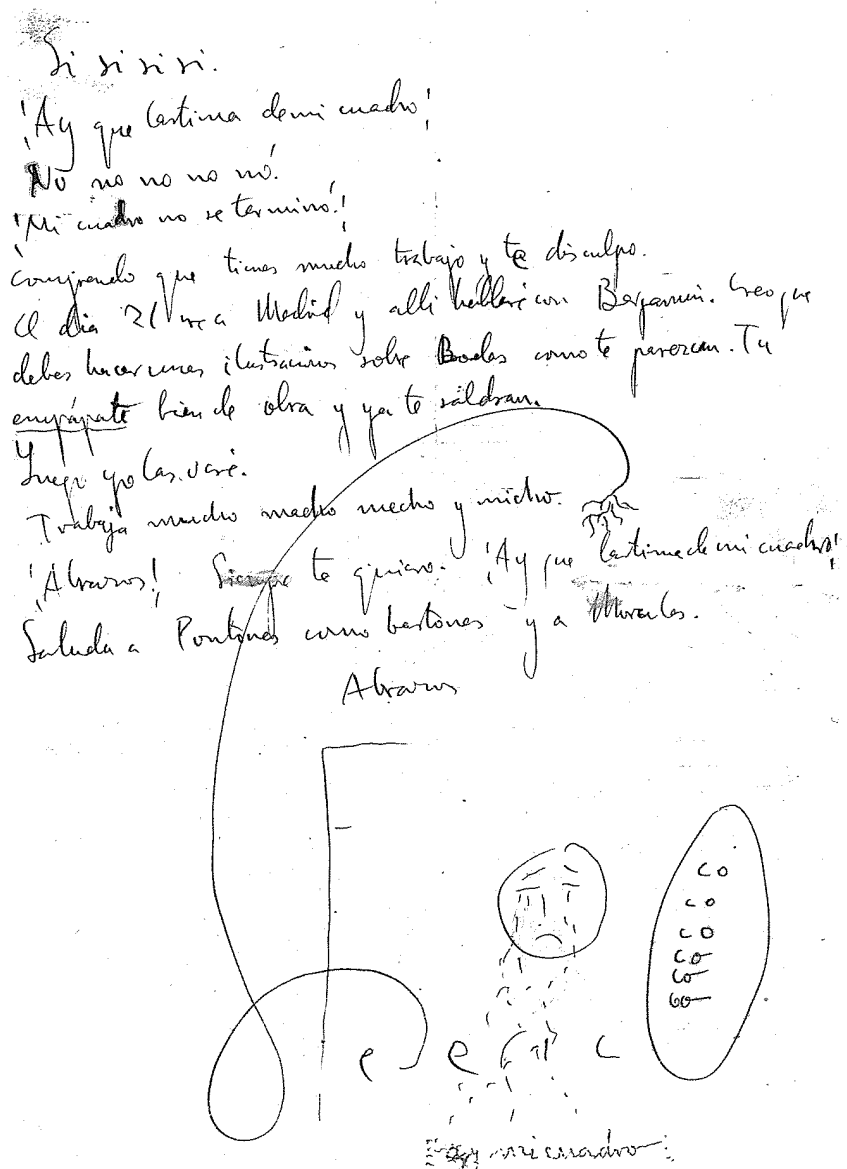 Si si si si.
¡Ay que lastima de mi cuadro!
No no no no nó.
¡Mi cuadro no se terminó!
Comprendo que tienes mucho trabajo y te disculpo.
El dia 21 ire a Madrid y alli hablaré con Bergamin. Creo que
debes hacer unas ilustraciones sobre Bodas como te parezcan. Tu
empápate bien de obra y ya te saldran.
Luego yo las veré.
Trabaja mucho macho mecho y micho.
¡Abrazos! Siempre te quiero. ¡Ay que lastima de mi cuadro!
Saluda a Pontones como bastones y a Morales.
Abrazos
F e e c
co
co
co
co
co
co
ay mi cuadro